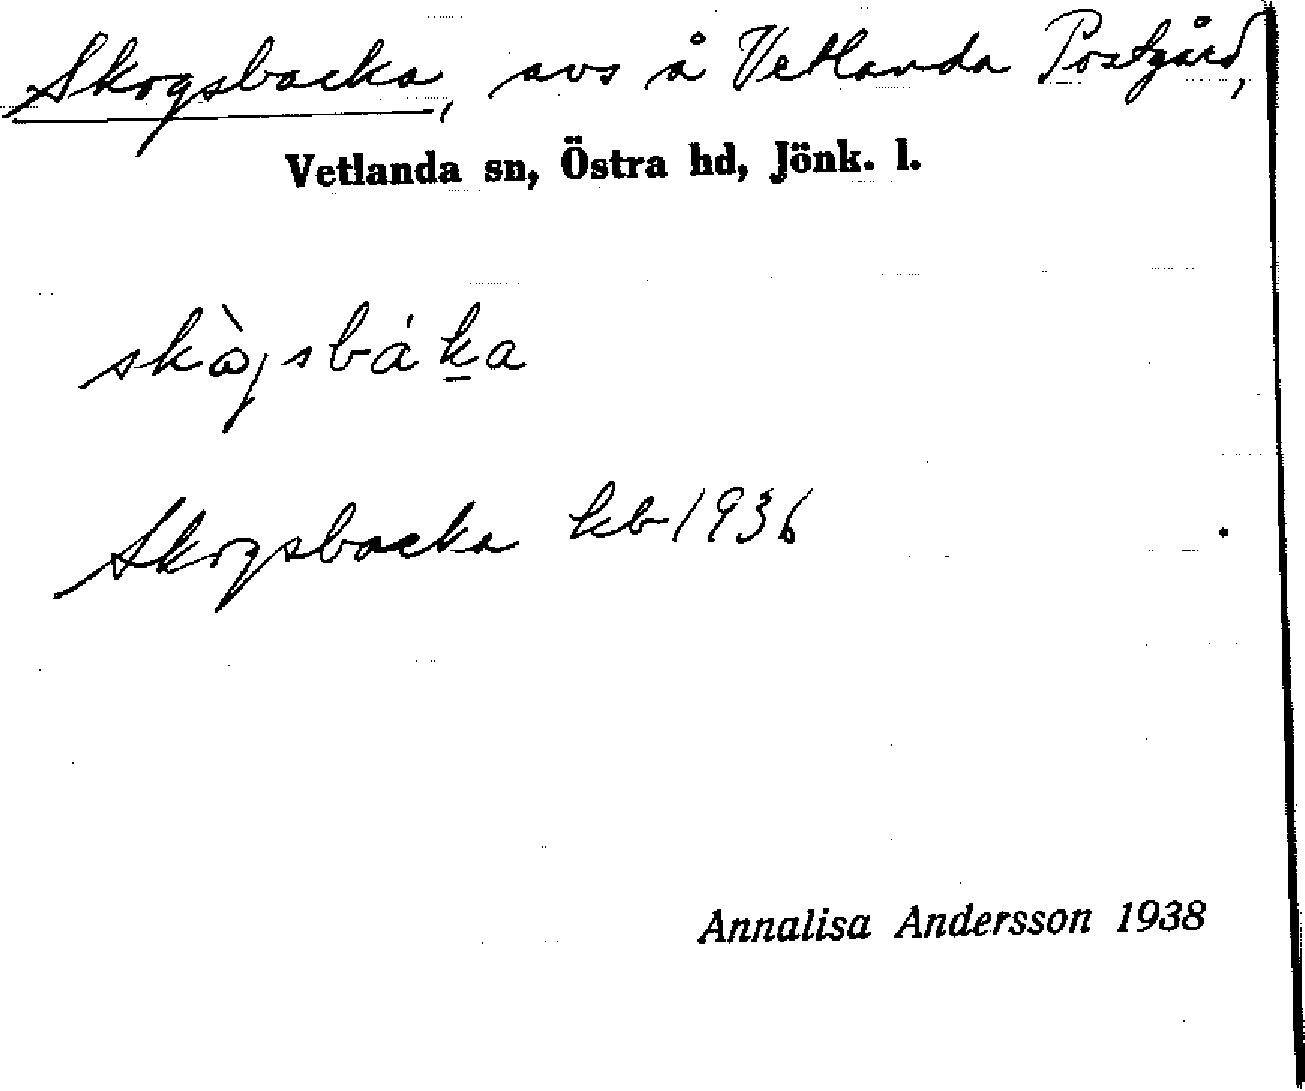 Skogsbacka, avs å Vetlanda Postgård,
Vetlanda sn, Östra hd, Jönk. l.
Skogsbacka kb 1936
Annalisa Andersson 1938